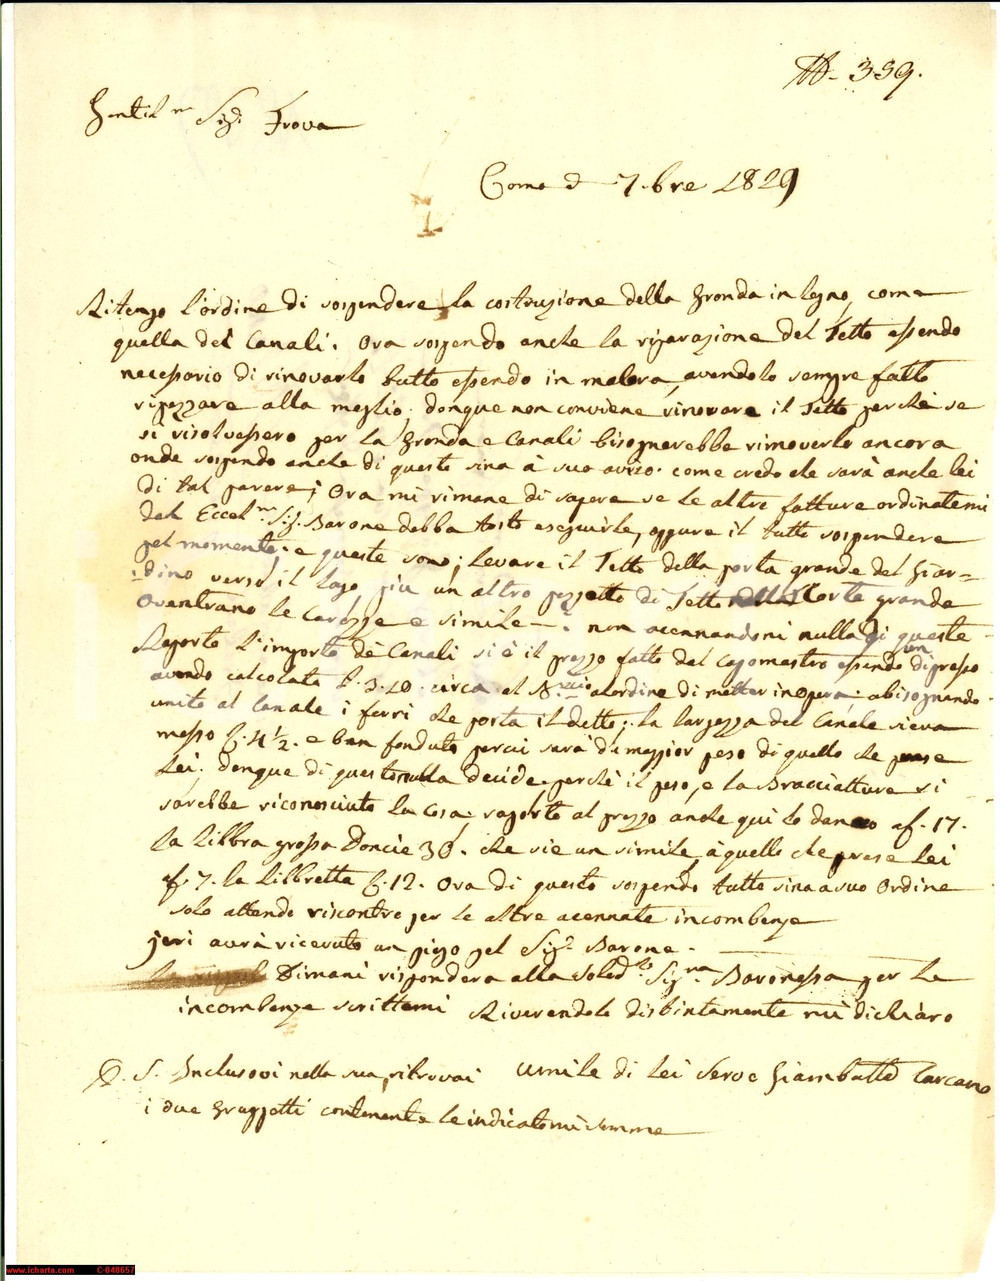 N. 339.
Gentil.mo Sig.r Frova
Como 7.bre 1829
Ritengo l'ordine di sospendere la costruzione della Gronda in legno, come
quella dei Canali. Ora sospendo anche la riparazione del Tetto essendo
necessario di rinovarlo tutto essendo in malora, avendolo sempre fatto
ripezzare alla meglio; donque non conviene rinovare il Tetto perchè se
si risolvessero per la Gronda e Canali bisognerebbe rimoverlo ancora
onde sospendo anche di questo sina à suo aviso. come credo che sarà anche lei
di tal parere; Ora mi rimane di sapere se le altre fatture ordinatemi
dal Eccel.mo Sig.r Barone debba tosto eseguirle, oppure il tutto sospendere
pel momento; e queste sono; levare il Tetto della porta grande del Giar=
=dino verso il lago, più un altro pezzetto di Tetto della Corte grande
ov entrano le Carozze e simile — non acennandomi nulla di queste
Raporto l'importo dè Canali si è il prezzo fatto dal Capomastro essendo di presso
avendo calcolato £. 3.10. circa al alordine di metter in opera. abisognando
unito al Canale i ferri che porta il detto; la largezza del Canale sieva
messo £. 4½. e ban fonduto percui sarà di maggior peso di quello che prese
Lei; donque di questo nulla decide perchè il peso, e la Bracciatura si
sarebbe riconosciuto la Cosa; raporto al prezzo anche qui lo danno af. 17.
la libbra grossa Doncie 30. che sie un simile, à quello che prese Lei
af. 7. la libbretta £. 12. Ora di questo sospendo tutto sina a suo Ordine
solo attendo riscontro per le altre acennate incombenze
jeri avrà ricevuto un piego pel Sig.r Barone.
Dimani rispondera alla Sig.ra Baronessa per le
incombenze scrittemi Riverendolo distintamente mi dichiaro
umile di Lei Servo Giambatt.o Carcano
P. S. Inclusovi nella sua, ritrovai
i due Gruppetti contenente le indicatemi somme
www.icharta.com C-848657